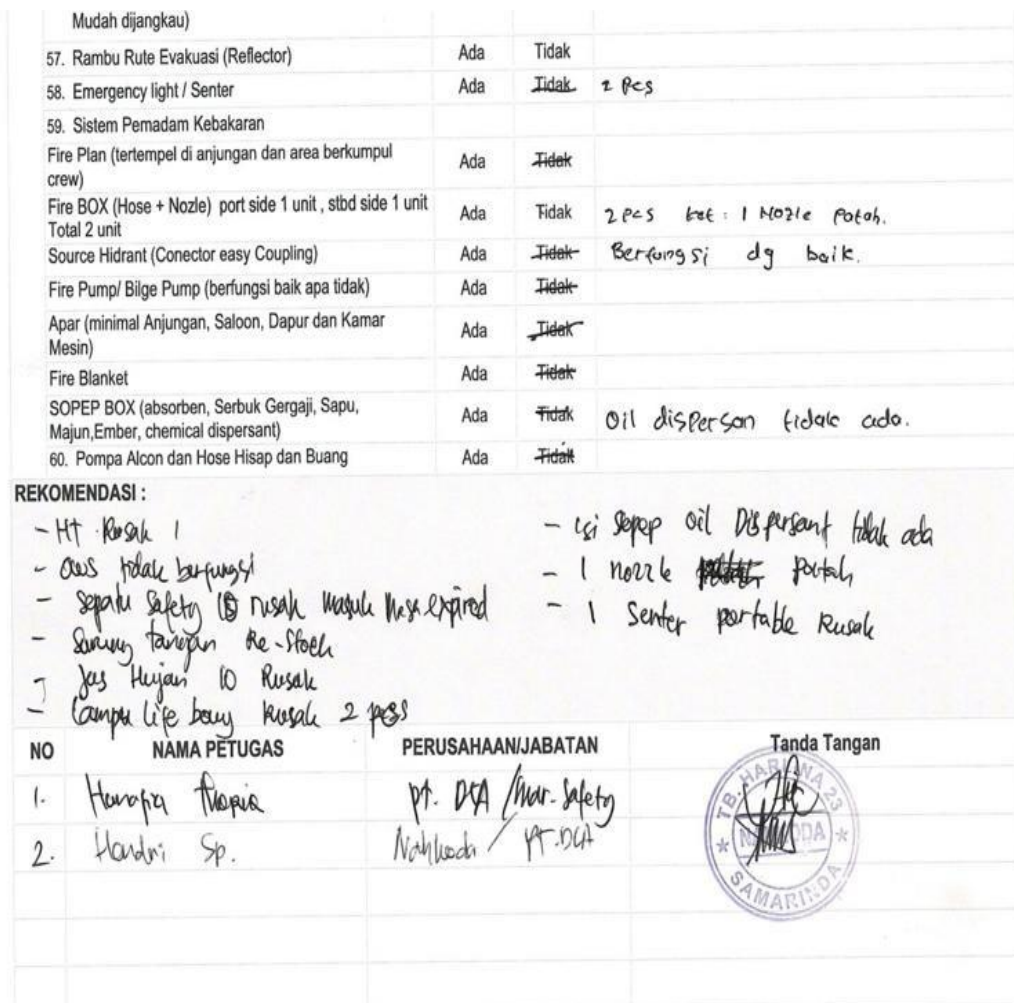 Mudah dijangkau)
57. Rambu Rute Evakuasi (Reflector) Ada Tidak
58. Emergency light / Senter Ada Tidak 2 Pcs
59. Sistem Pemadam Kebakaran
Fire Plan (tertempel di anjungan dan area berkumpul
crew) Ada Tidak
Fire BOX (Hose + Nozle) port side 1 unit , stbd side 1 unit
Total 2 unit Ada Tidak 2 Pcs ket : 1 Nozle Patah.
Source Hidrant (Conector easy Coupling) Ada Tidak Berfungsi dg baik.
Fire Pump/ Bilge Pump (berfungsi baik apa tidak) Ada Tidak
Apar (minimal Anjungan, Saloon, Dapur dan Kamar
Mesin) Ada Tidak
Fire Blanket Ada Tidak
SOPEP BOX (absorben, Serbuk Gergaji, Sapu,
Majun,Ember, chemical dispersant) Ada Tidak Oil disPersan tidak ada.
60. Pompa Alcon dan Hose Hisap dan Buang Ada Tidak
REKOMENDASI :
- HT Rusak 1
- aus tidak berfungsi
- Sepatu Safety 10 rusak masuk masa expired
- Sarung tangan Re-Stock
- Jas Hujan 10 Rusak
- Lampu life bouy Rusak 2 pcs
- isi sopep oil Dispersant tidak ada
- 1 nozzle patah
- 1 Senter portable Rusak
NO NAMA PETUGAS PERUSAHAAN/JABATAN Tanda Tangan
1. pt. DCA / Mar. Safety
2. Handri Sp. Nahkoda / PT. DCA
TB. HARLINA 23
NAHKODA
SAMARINDA